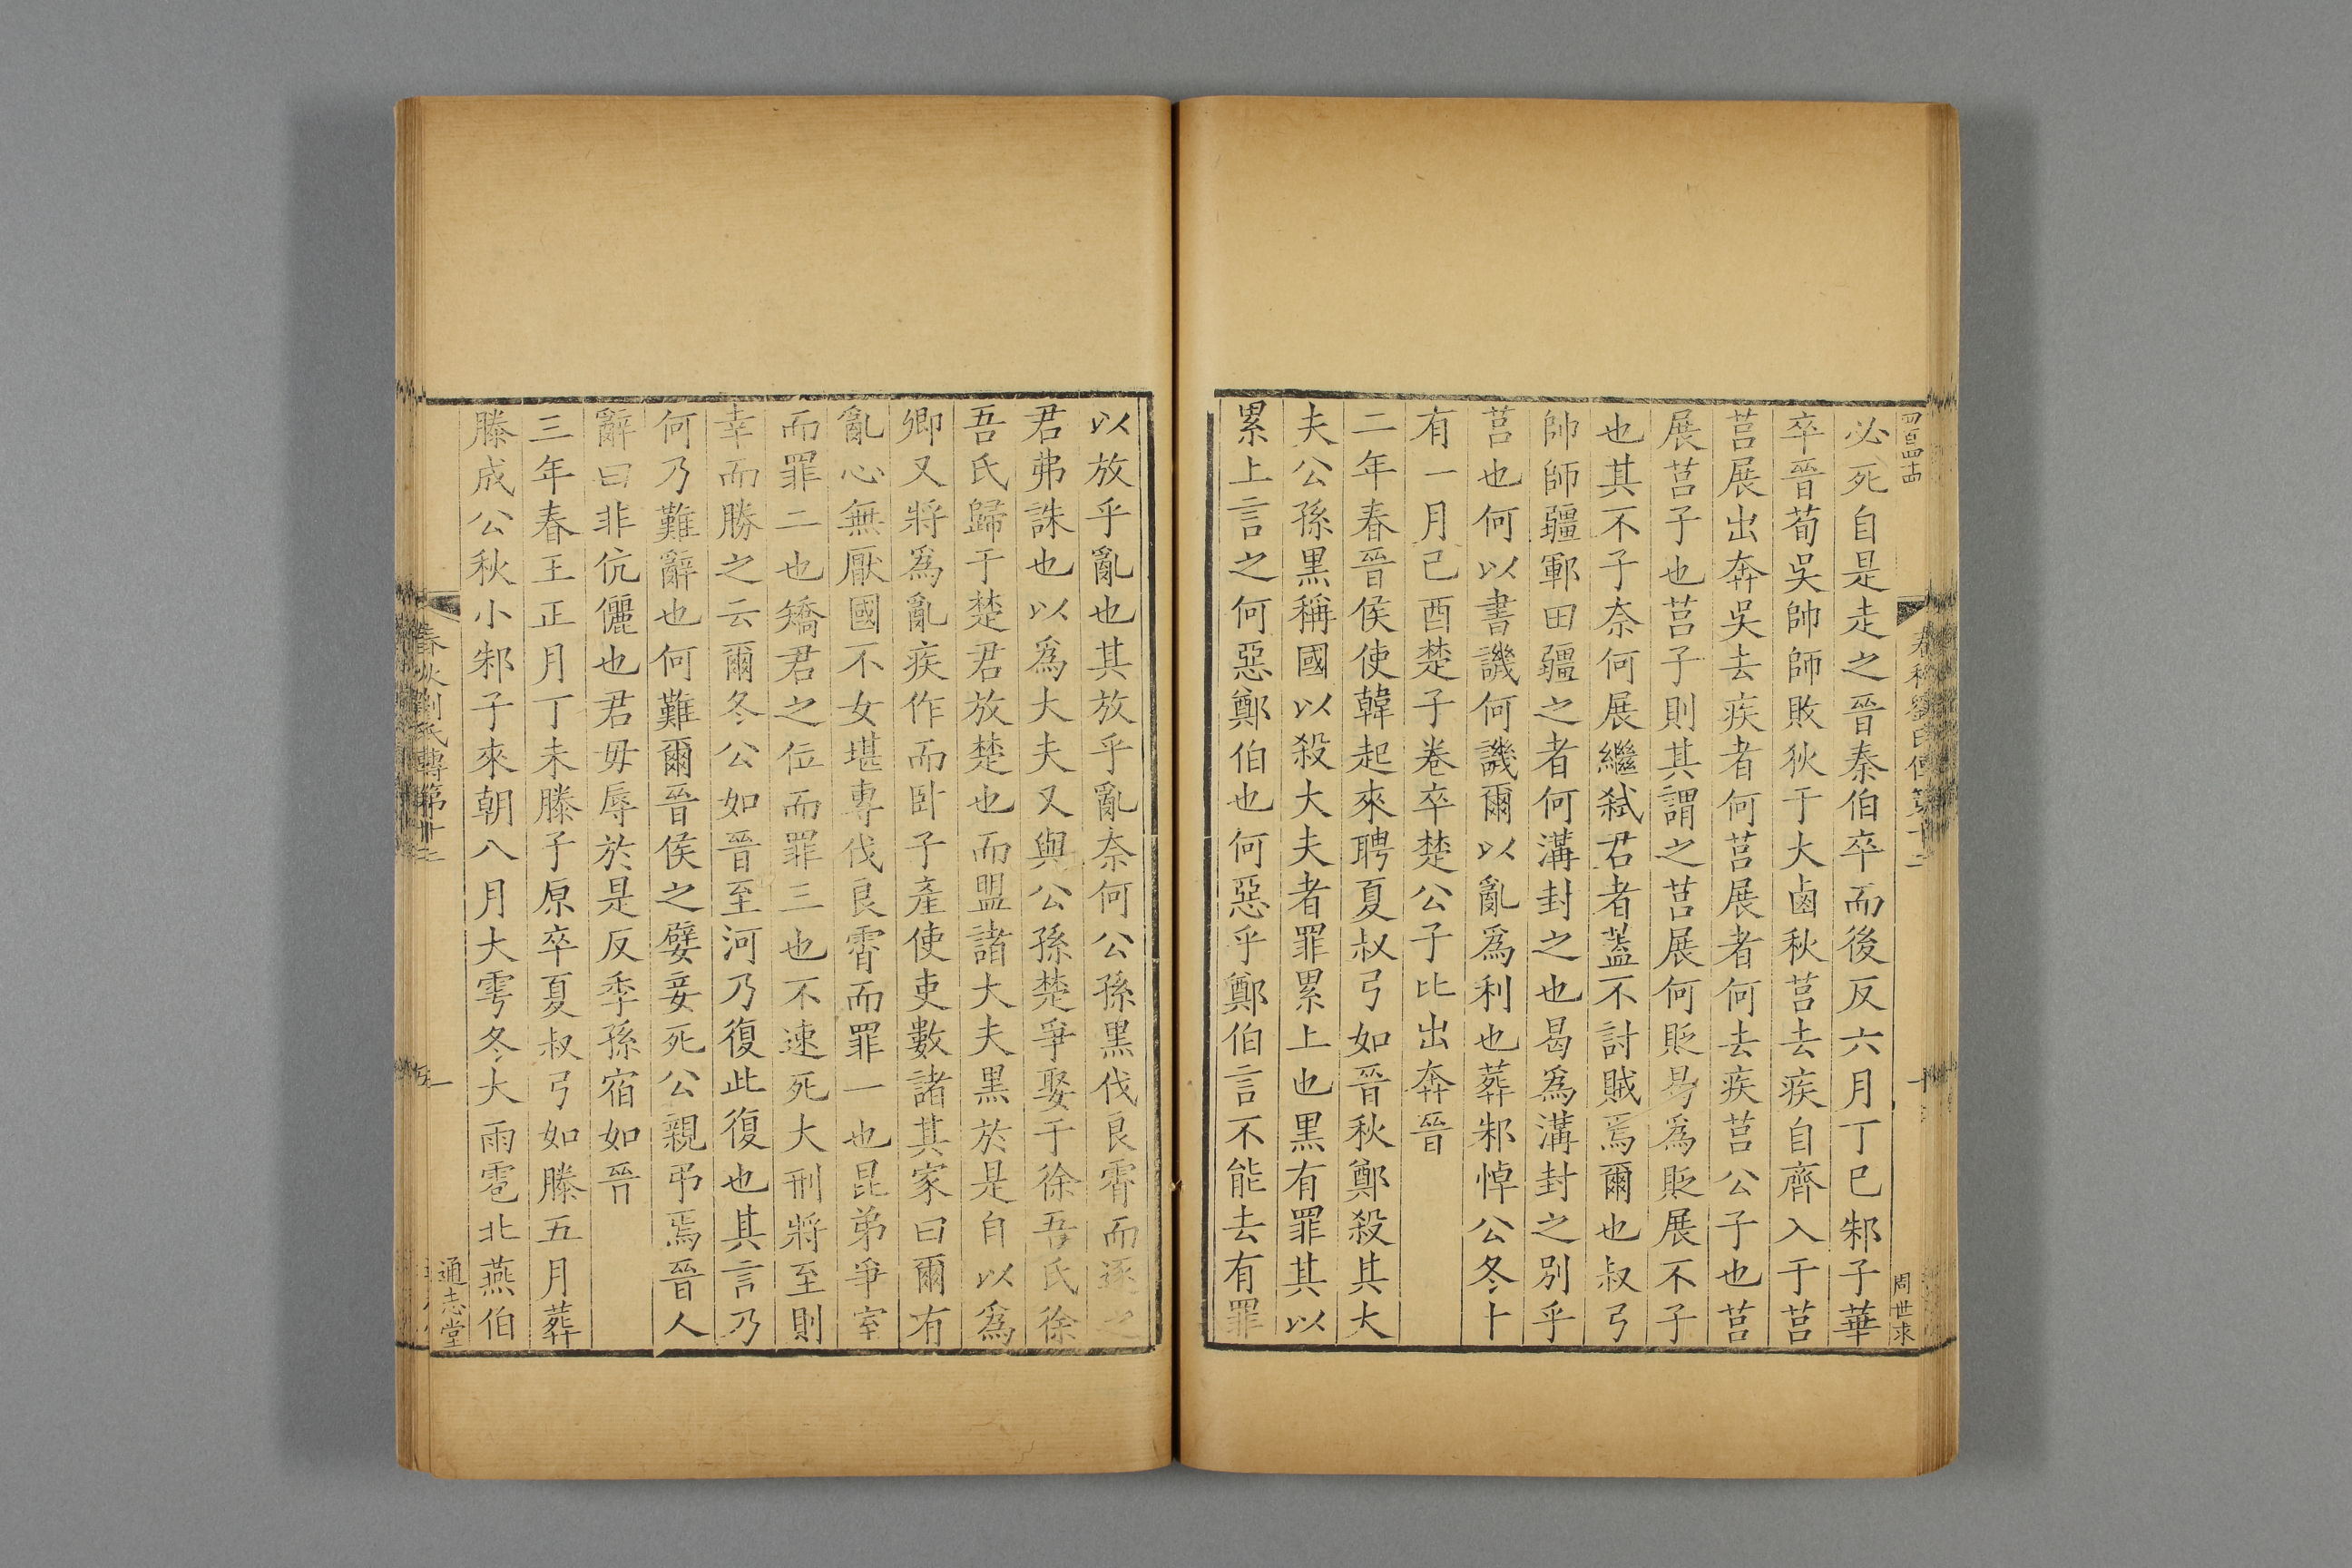 必死自是走之晉秦伯卒而後反六月丁巳邾子華
卒晉荀吳帥師敗狄于大鹵秋莒去疾自齊入于莒
莒展出奔吳去疾者何莒展者何去疾莒公子也莒
展莒子也莒子則其謂之莒展何貶曷為貶展不子
也其不子奈何展繼弑君者蓋不討賊焉爾也叔弓
帥師疆鄆田疆之者何溝封之也曷為溝封之別乎
莒也何以書譏何譏爾以亂為利也葬邾悼公冬十
有一月己酉楚子卷卒楚公子比出奔晉
二年春晉侯使韓起來聘夏叔弓如晉秋鄭殺其大
夫公孫黑稱國以殺大夫者罪累上也黑有罪其以
累上言之何惡鄭伯也何惡乎鄭伯言不能去有罪
周世求
以放乎亂也其放乎亂奈何公孫黑伐良霄而逐之
君弗誅也以為大夫又與公孫楚爭娶于徐吾氏徐
吾氏歸于楚君放楚也而盟諸大夫黑於是自以為
卿又將為亂疾作而卧子產使吏數諸其家曰爾有
亂心無厭國不女堪專伐良霄而罪一也昆弟爭室
而罪二也矯君之位而罪三也不速死大刑將至則
幸而勝之云爾冬公如晉至河乃復此復也其言乃
何乃難辭也何難爾晉侯之嬖妾死公親弔焉晉人
辭曰非伉儷也君毋辱於是反季孫宿如晉
三年春王正月丁未滕子原卒夏叔弓如滕五月葬
滕成公秋小邾子來朝八月大雩冬大雨雹北燕伯
春秋劉氏傳第十二
通志堂